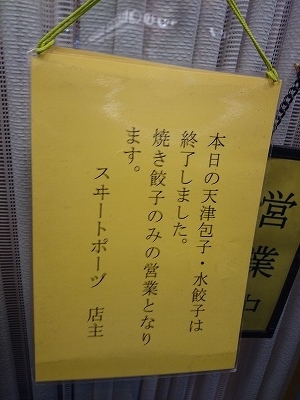 本日の天津包子・水餃子は
終了しました。
焼き餃子のみの営業となり
ます。
スヰートポーヅ 店主
営業中